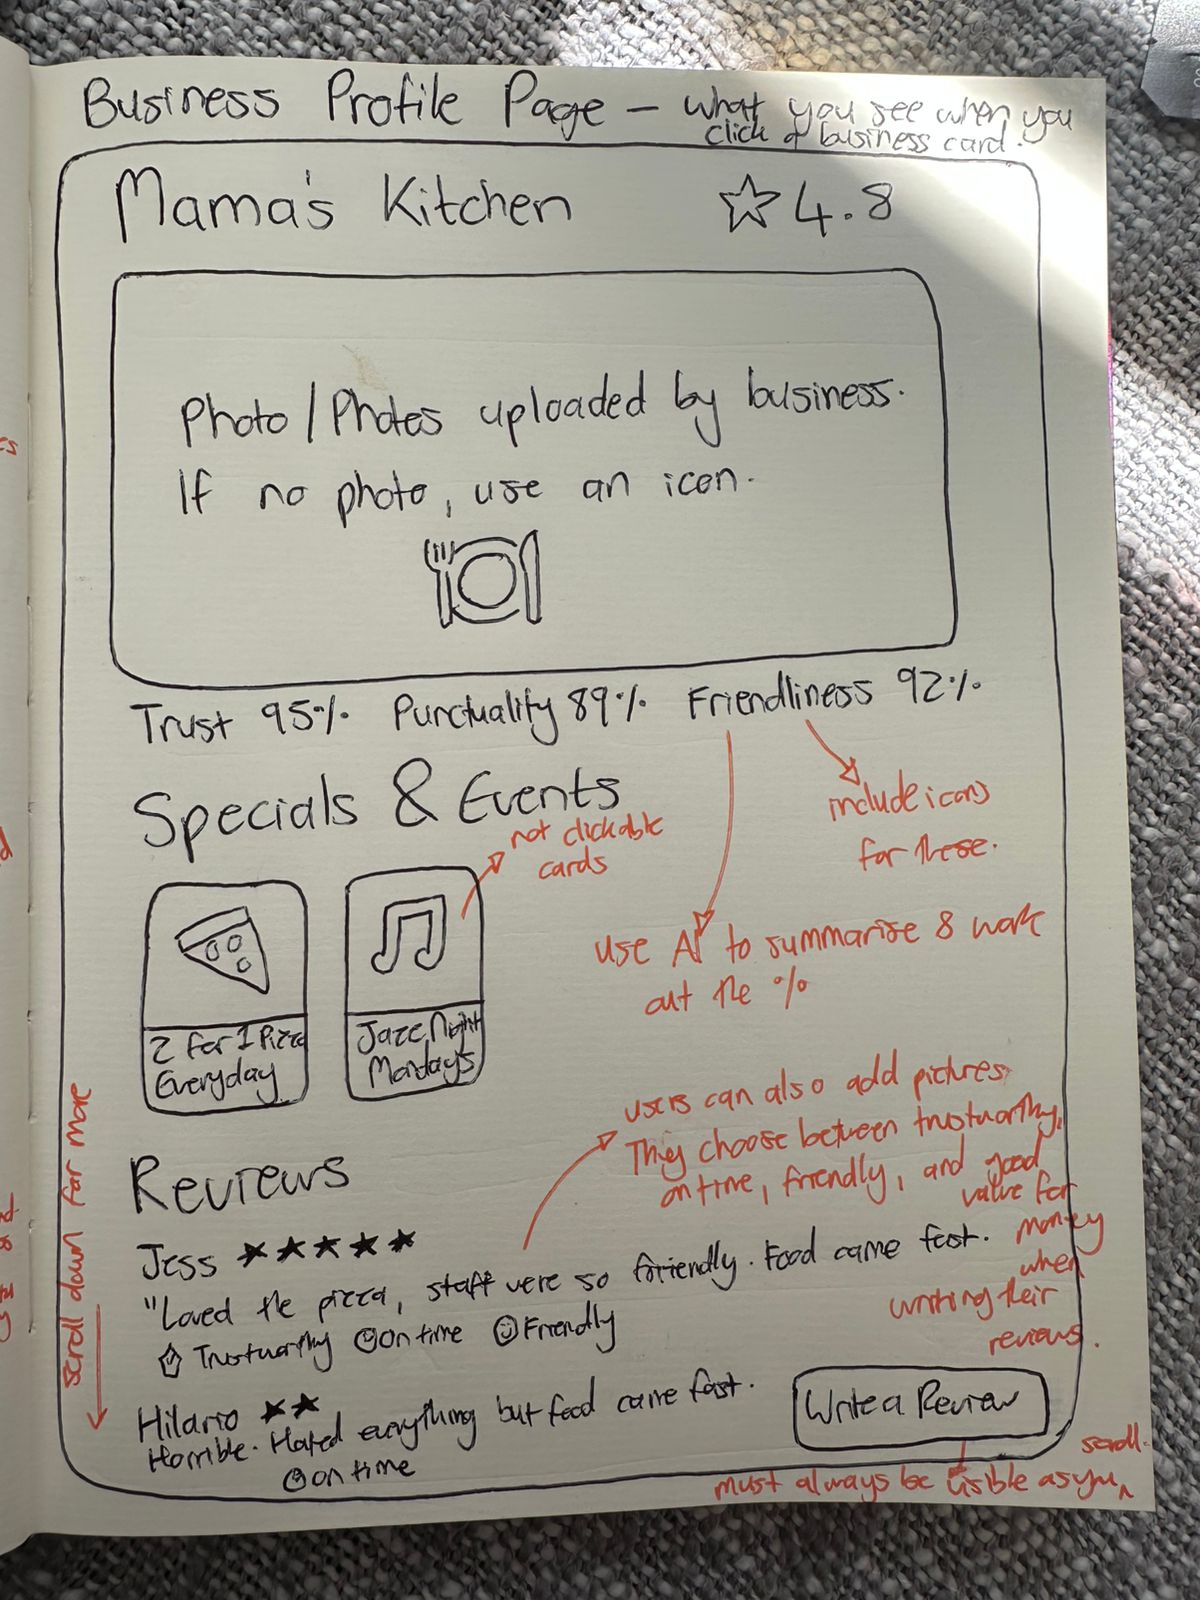 Business Profile Page – what you see when you
click a business card.
Mama's Kitchen ☆ 4.8
Photo/Photos uploaded by business.
If no photo, use an icon.
Trust 95% Punctuality 89% Friendliness 92%
include icons
for these.
use AI to summarise & work
out the %
Specials & Events
not clickable
cards
2 for 1 Pizza
Everyday
Jazz Night
Mondays
users can also add pictures
They choose between trustworthy,
on time, friendly, and good
value for
money
when
writing their
reviews.
scroll down for more
Reviews
Jess ★★★★★
"Loved the pizza, staff were so friendly. Food came fast.
Trustworthy On time Friendly
Hilario ★★
Horrible. Hated everything but food came fast.
On time
Write a Review
must always be visible as you scroll.